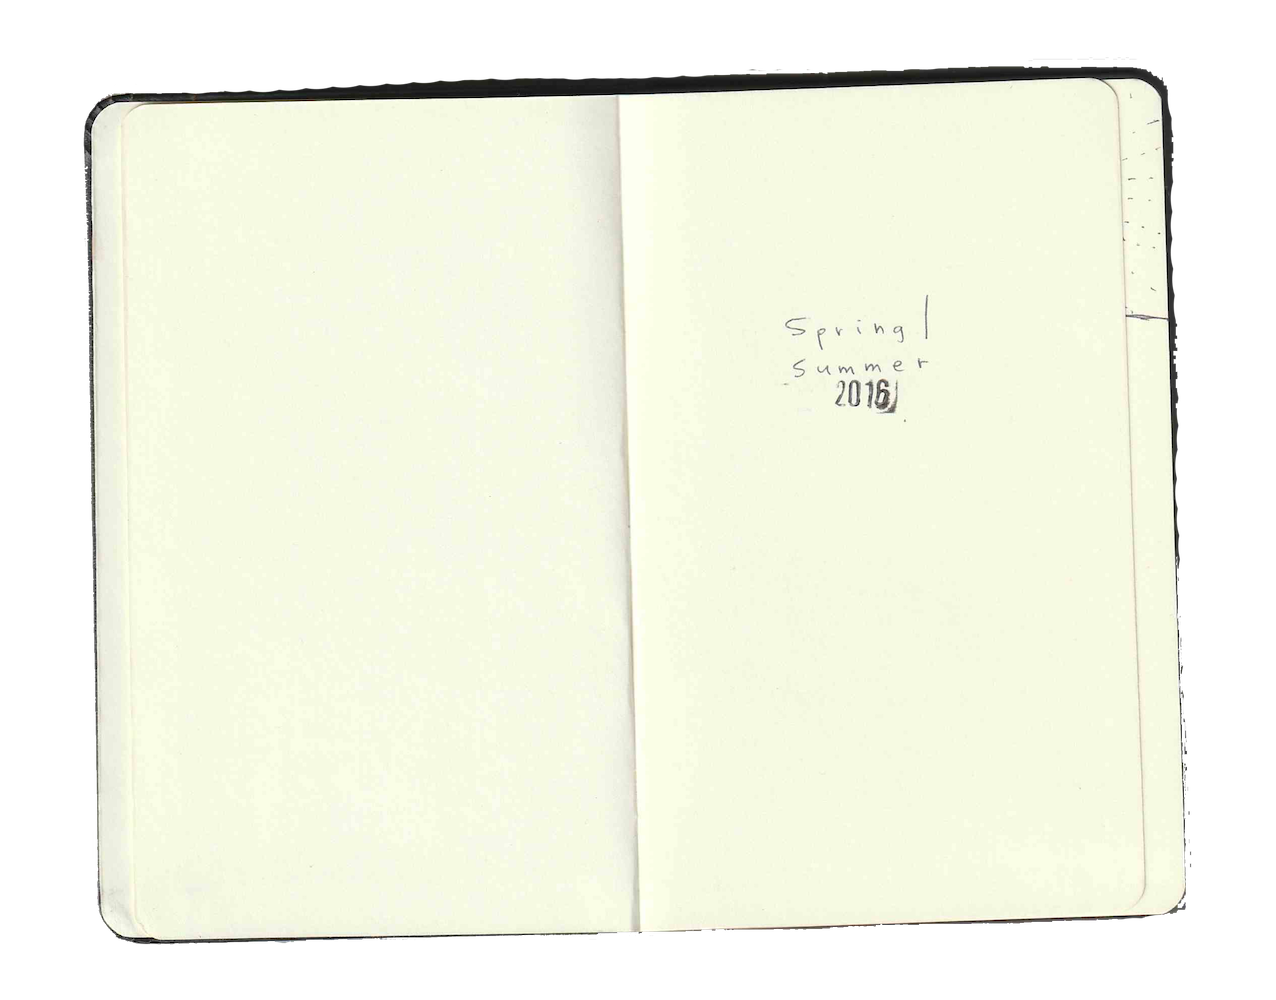 Spring/
Summer
2016